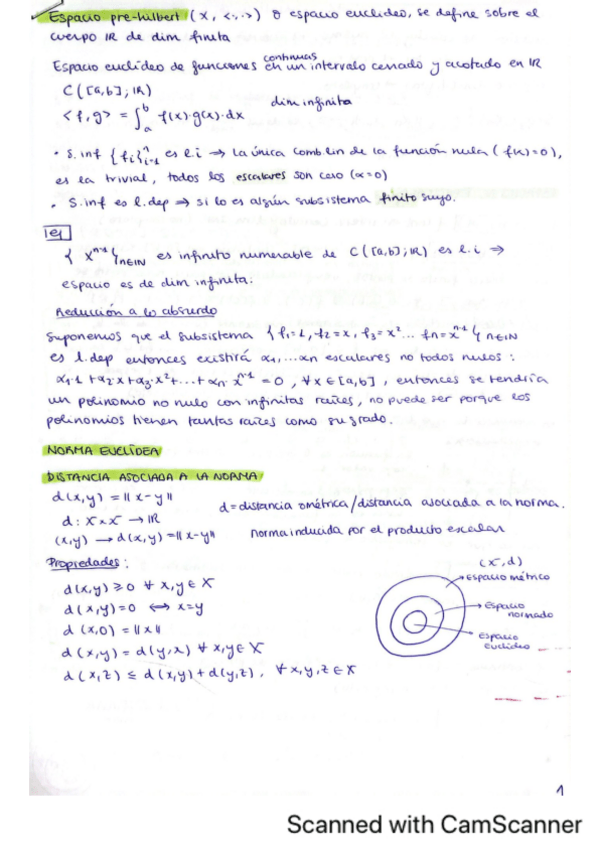 Espacio pre-hilbert (X, <·,·>) o espacio euclideo, se define sobre el
cuerpo IR de dim finita
Espacio euclídeo de funciones continuas en un intervalo cerrado y acotado en IR
C([a,b]; IR)
dim infinita
<f,g> = ∫ₐᵇ f(x)·g(x)·dx
· S. inf {fᵢ}ⁿᵢ₌₁ es l.i ⇒ la única comb. lin de la función nula (f(x)=0),
es la trivial, todos los escalares son cero (α=0)
· S. inf es l. dep ⇒ si lo es algún subsistema finito suyo.
ej
{xⁿ⁻¹}n∈IN es infinito numerable de C([a,b]; IR) es l.i ⇒
espacio es de dim infinita.
Reducción a lo absurdo
Suponemos que el subsistema {f₁=1, f₂=x, f₃=x² ... fn=xⁿ⁻¹}n∈IN
es l. dep entonces existirá α₁,...αn escalares no todos nulos :
α₁·1+α₂·x+α₃·x²+...+αn·xⁿ⁻¹=0, ∀x∈[a,b], entonces se tendría
un polinomio no nulo con infinitas raíces, no puede ser porque los
polinomios tienen tantas raíces como su grado.
NORMA EUCLÍDEA
DISTANCIA ASOCIADA A LA NORMA
d(x,y) = ||x-y||
d = distancia o métrica / distancia asociada a la norma.
d: X×X → IR
(x,y) → d(x,y)=||x-y||
norma inducida por el producto escalar
Propiedades:
d(x,y) ≥ 0 ∀ x,y ∈ X
d(x,y)=0 ⟷ x=y
d(x,0) = ||x||
d(x,y) = d(y,x) ∀ x,y ∈ X
d(x,z) ≤ d(x,y)+d(y,z), ∀ x,y,z ∈ X
(X,d)
espacio métrico
espacio
normado
espacio
euclídeo
1
Scanned with CamScanner